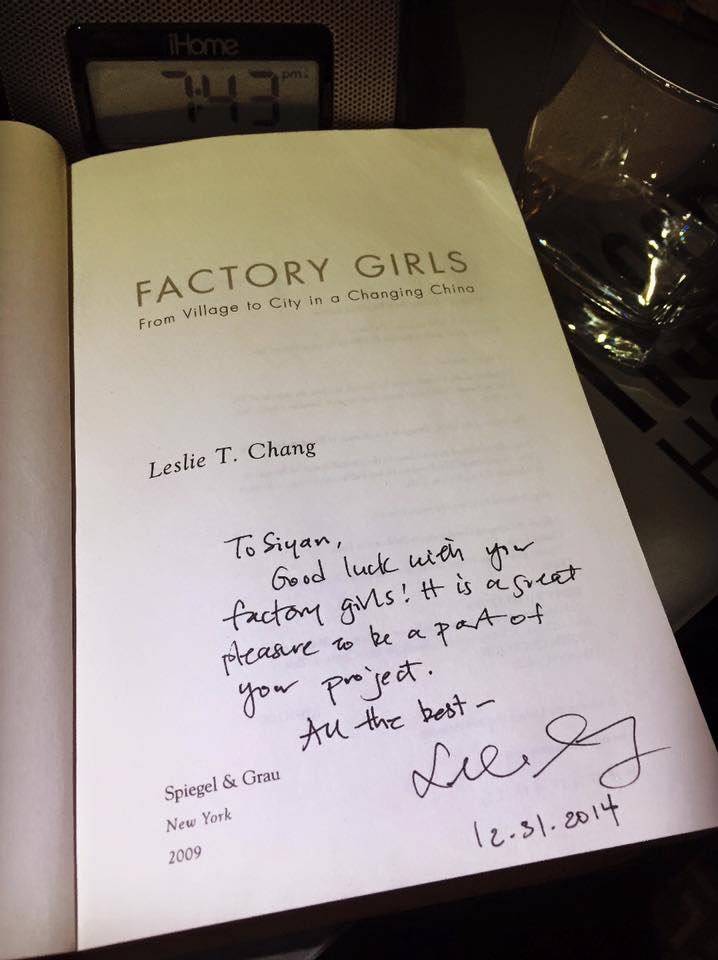 iHome
7:43 pm
FACTORY GIRLS
From Village to City in a Changing China
Leslie T. Chang
To Siyan,
Good luck with your
factory girls! It is a great
pleasure to be a part of
your project.
All the best —
Spiegel & Grau
New York
2009
12.31.2014